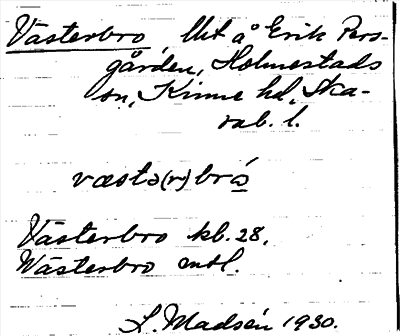 Västerbro, Ut å Erik Pers-
gården, Holmestads
sn, Kinne hd, Ska-
rab. l.
væstə(r)brɷ
Västerbro kb. 28.
Wästerbro mtl.
L. Madsén 1930.